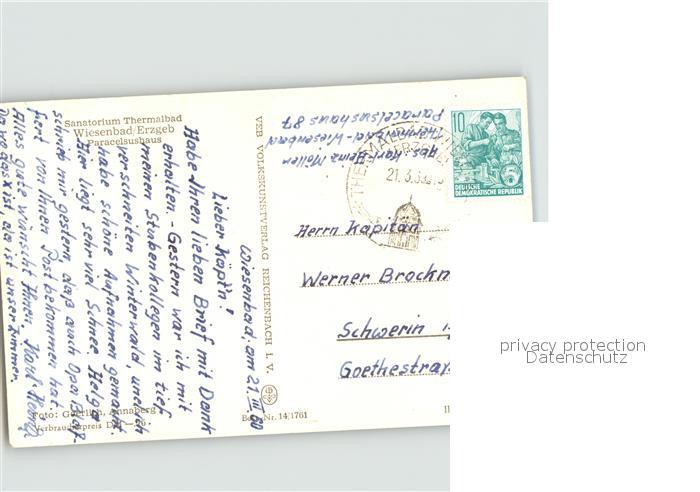 Sanatorium Thermalbad
Wiesenbad/Erzgeb
Paracelsushaus
Wiesenbad, am 21.III.60
Lieber Käpt'n!
Habe Ihren lieben Brief mit Dank
erhalten. - Gestern war ich mit
meinen Stubenkollegen im tief
verschneiten Winterwald, und ich
habe schöne Aufnahmen gemacht.
Hier liegt sehr viel Schnee. Helga
schrieb mir gestern, daß auch Opa
von Ihnen Post bekommen hat.
Alles gute wünscht Ihnen Karl-Heinz
Foto: Gaerlich, Annaberg
Verbraucherpreis DM
Best.-Nr. 14/1761
VEB VOLKSKUNSTVERLAG REICHENBACH I. V.
Abs. Karl-Heinz Möller
Thermalbad-Wiesenbad
Paracelsushaus 87
THERMALBAD
21.3.60
10
DEUTSCHE
DEMOKRATISCHE REPUBLIK
Herrn Kapitän
Werner Brockm
Schwerin
Goethestraß
privacy protection
Datenschutz